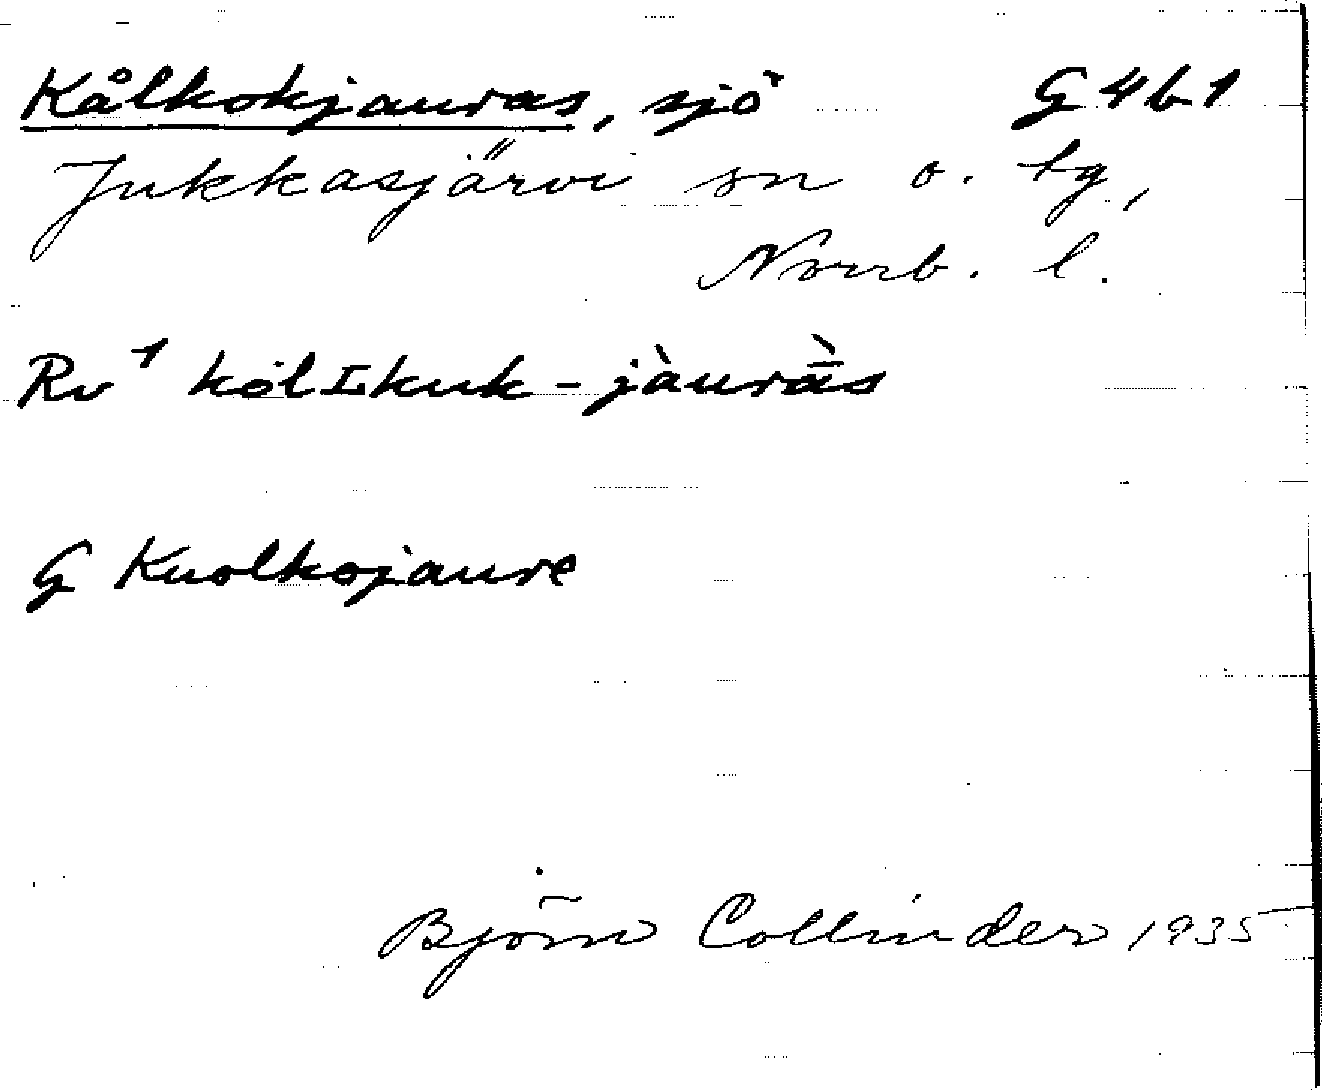 Kålkokjauras, sjö G4b1
Jukkasjärvi sn o. tg,
Norrb. l.
Rv¹ kȯlʟkuk-jàurā̀s
G Kuolkojaure
Björn Collinder 1935